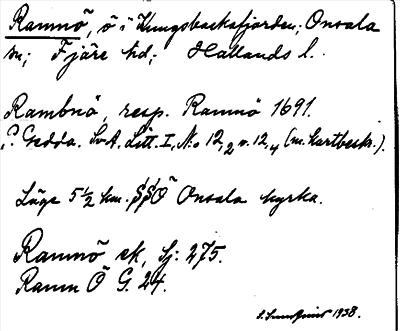 Ramnö, ö i Kungsbackafjorden; Onsala
sn; Fjäre hd; Hallands l.
Rambnö, resp. Ramnö 1691.
P. Gedda. SvA. Litt. I, No 12,2 o. 12,4 (m. kartbeskr.).
Läge 5 1/2 km. SSO Onsala kyrka.
Ramnö ek, Sj. 275.
Ramn Ö G. 24.
1938.